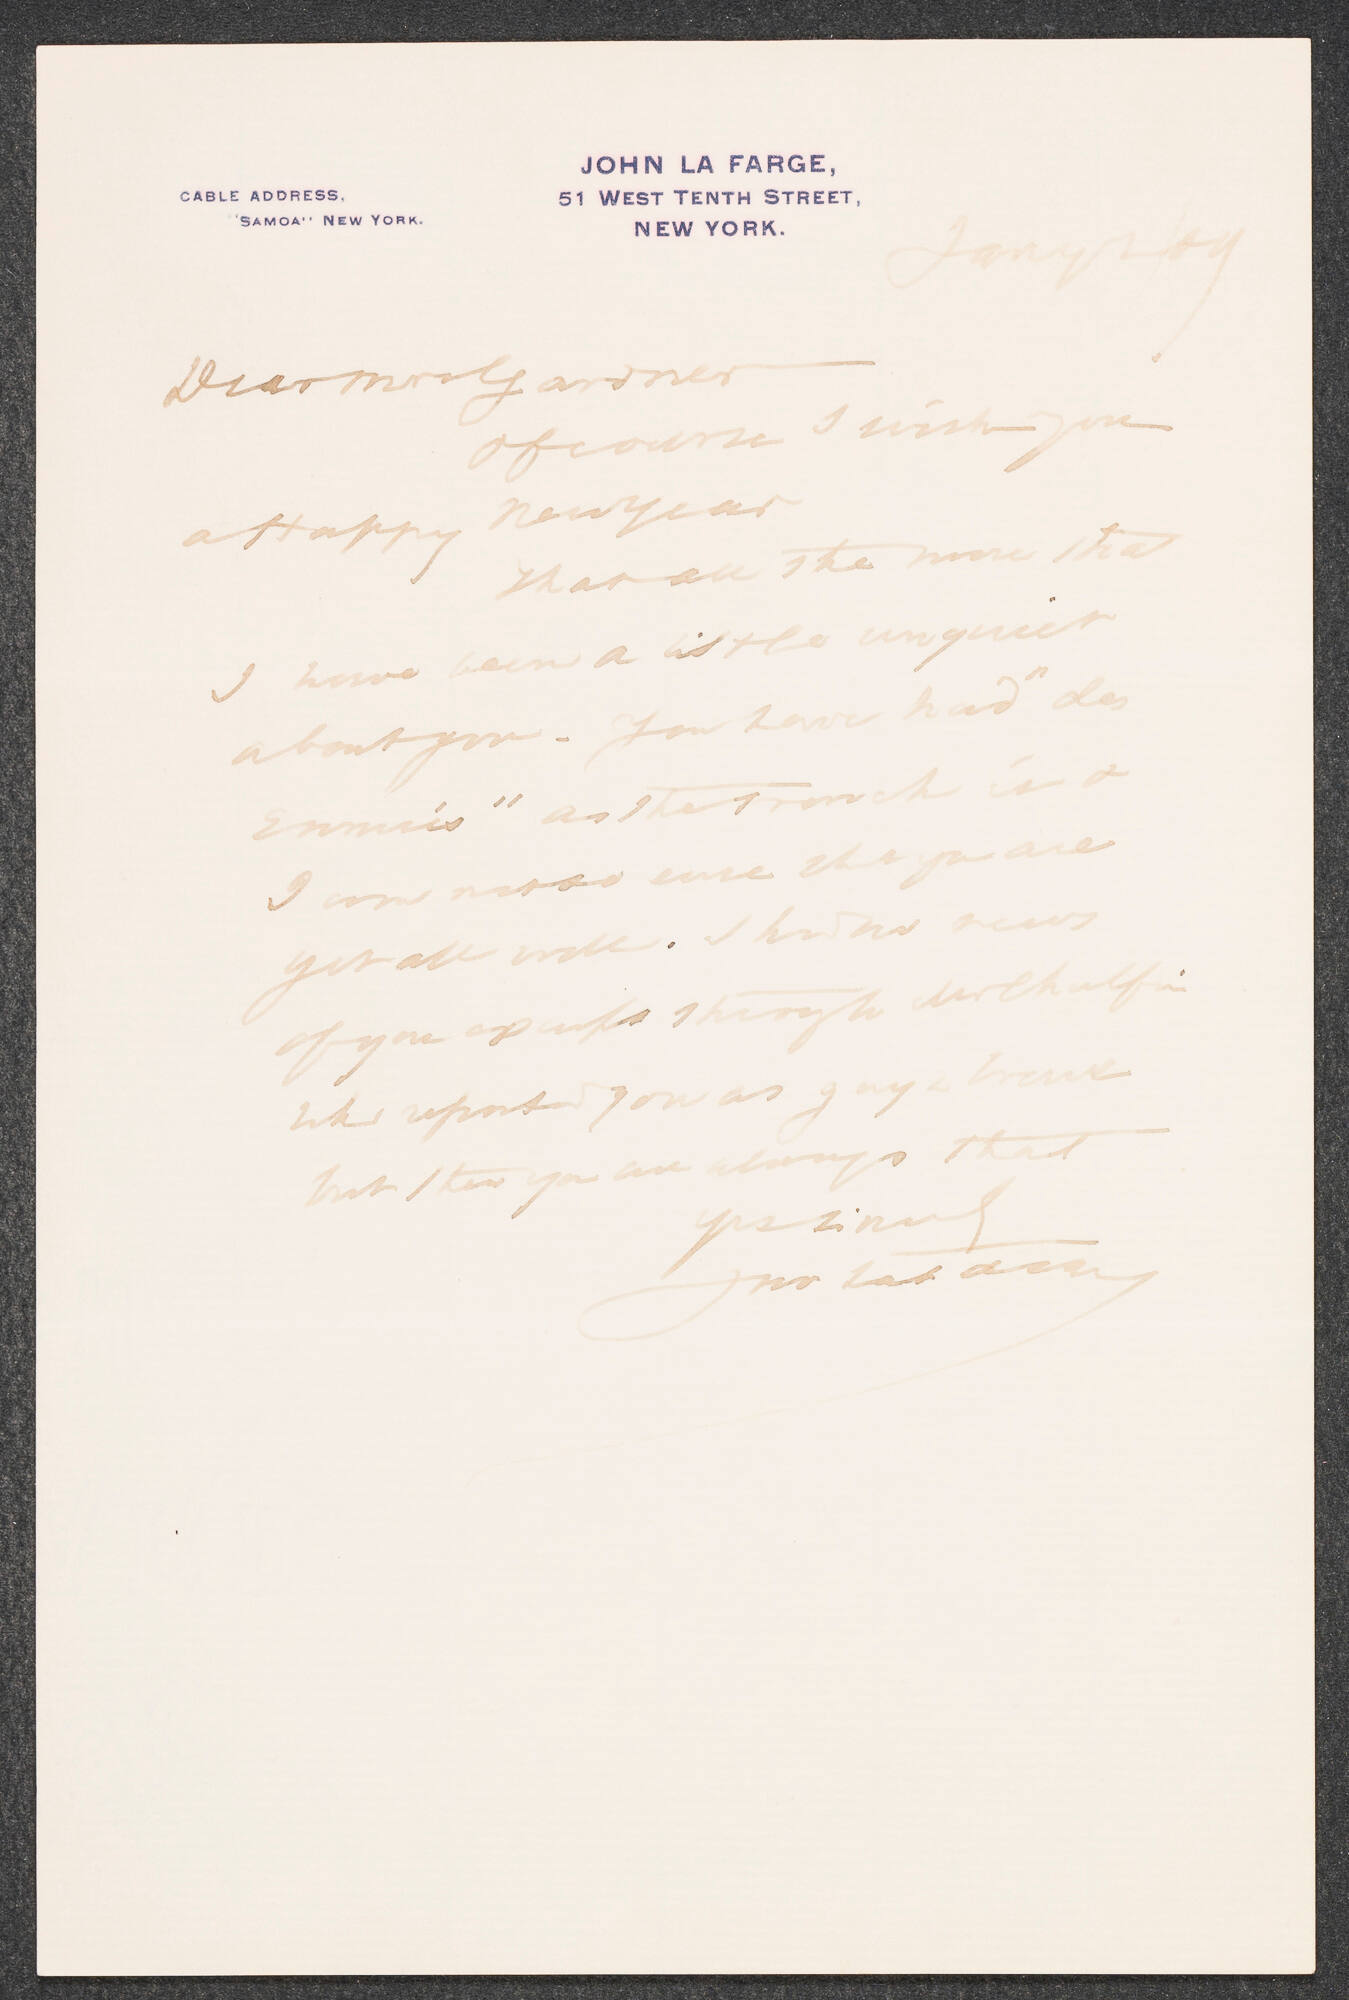 JOHN LA FARGE,
51 WEST TENTH STREET,
NEW YORK.
CABLE ADDRESS,
"SAMOA" NEW YORK.
Jany
Dear Mrs Gardner
Of course I wish you
a Happy New Year
that all the more that
I have been a little unquiet
about you - You have had "des
Ennuis" as the French is &
I am not so sure that you are
yet all well. I had no news
of you except through
who reported you as gay & brave
but then you are always that
Yrs
Jno La Farge